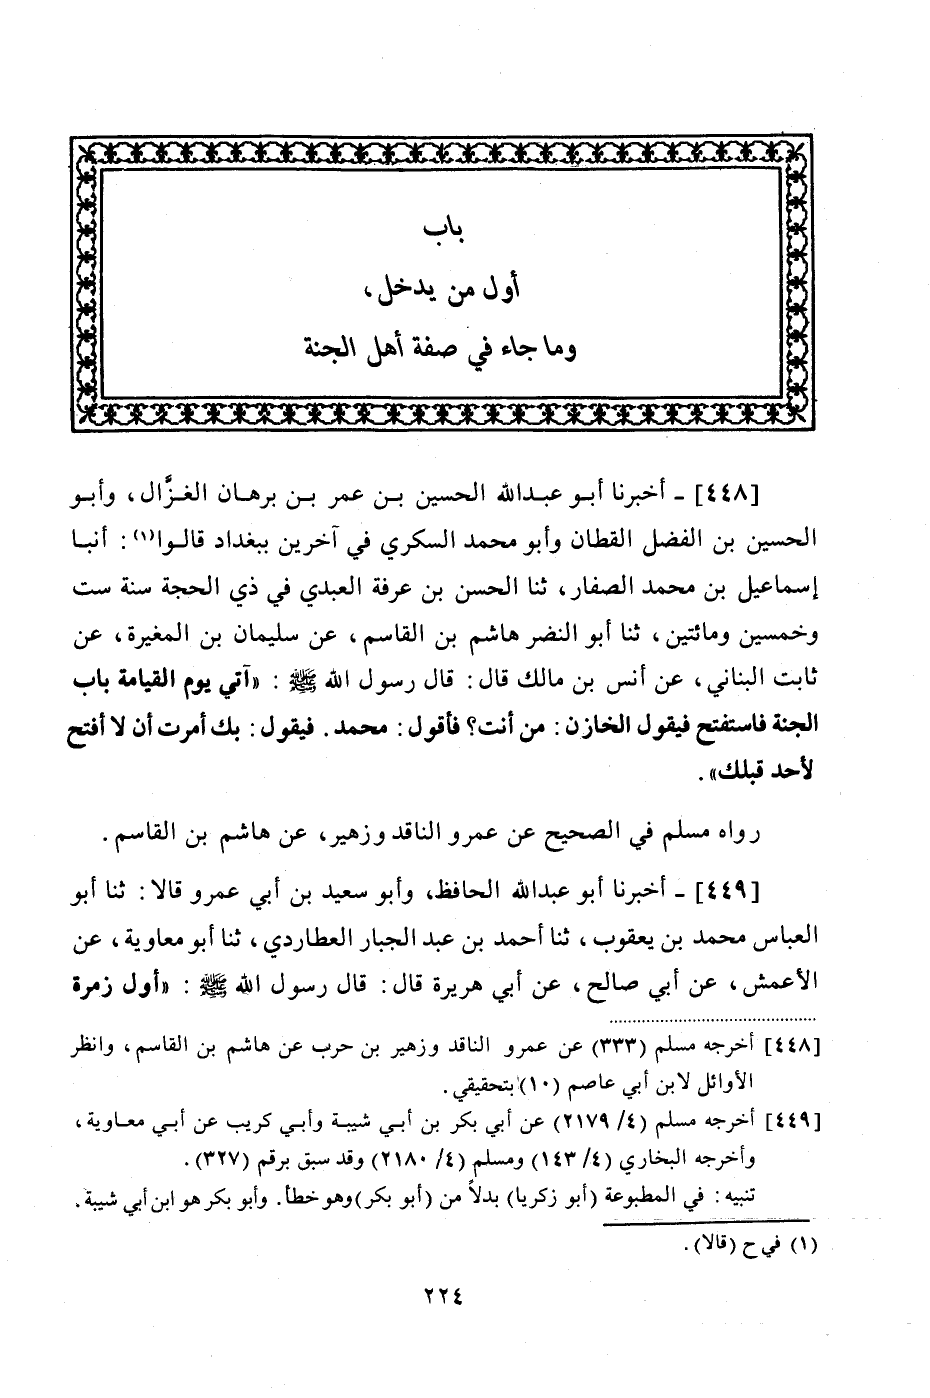 باب
أول من يدخل،
وما جاء في صفة أهل الجنة
[٤٤٨] ـ أخبرنا أبو عبدالله الحسين بن عمر بن برهان الغزَّال، وأبو
الحسين بن الفضل القطان وأبو محمد السكري في آخرين ببغداد قالوا(١): أنبا
إسماعيل بن محمد الصفار، ثنا الحسن بن عرفة العبدي في ذي الحجة سنة ست
وخمسين ومائتين، ثنا أبو النضر هاشم بن القاسم، عن سليمان بن المغيرة، عن
ثابت البناني، عن أنس بن مالك قال: قال رسول الله ﷺ: «آتي يوم القيامة باب
الجنة فاستفتح فيقول الخازن: من أنت؟ فأقول: محمد. فيقول: بك أمرت أن لا أفتح
لأحد قبلك».
رواه مسلم في الصحيح عن عمرو الناقد وزهير، عن هاشم بن القاسم.
[٤٤٩] ـ أخبرنا أبو عبدالله الحافظ، وأبو سعيد بن أبي عمرو قالا: ثنا أبو
العباس محمد بن يعقوب، ثنا أحمد بن عبد الجبار العطاردي، ثنا أبو معاوية، عن
الأعمش، عن أبي صالح، عن أبي هريرة قال: قال رسول الله ﷺ: «أول زمرة
[٤٤٨] أخرجه مسلم (٣٣٣) عن عمرو الناقد وزهير بن حرب عن هاشم بن القاسم، وانظر
الأوائل لابن أبي عاصم (١٠) بتحقيقي.
[٤٤٩] أخرجه مسلم (٤/ ٢١٧٩) عن أبي بكر بن أبي شيبة وأبي كريب عن أبي معاوية،
وأخرجه البخاري (٤/ ١٤٣) ومسلم (٤/ ٢١٨٠) وقد سبق برقم (٣٢٧).
تنبيه: في المطبوعة (أبو زكريا) بدلاً من (أبو بكر) وهو خطأ. وأبو بكر هو ابن أبي شيبة.
(١) في ح (قالا).
٢٢٤